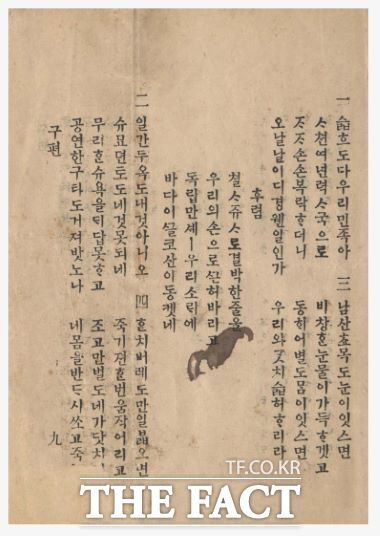 一 슯흐도다우리민족아
ᄉᆞ쳔여년력ᄉᆞ국으로
ᄌᆞᄌᆞ손손복락ᄒᆞ더니
오날날이디경웬일인가
후렴
쳘ᄉᆞ쥬ᄉᆞ로결박한줄을
우리의손으로ᄭᅳᆫ허바리고
독립만셰ㅡ우리소ᄅᆡ에
바다이ᄭᅳᆯ코산이동켓네
二 일간두옥도내것아니오
슈묘뎐토도네것못되네
무리ᄒᆞᆫ슈욕을ᄃᆡ답못ᄒᆞ고
공연한구타도거져밧노나
三 남산초목도눈이잇스면
비창ᄒᆞᆫ눈물이가득ᄒᆞ겟고
동ᄒᆡ어별도맘이잇스면
우리와ᄀᆞᆺ치슯허ᄒᆞ리라
四 ᄒᆞᆫ치버레도만일ᄇᆞᆲ으면
죽기젼ᄒᆞᆫ번움작어리고
조고만벌도네가닷치
네몸을반ᄃᆞ시쏘고죽
구편
九
TF.CO.KR
THE FACT